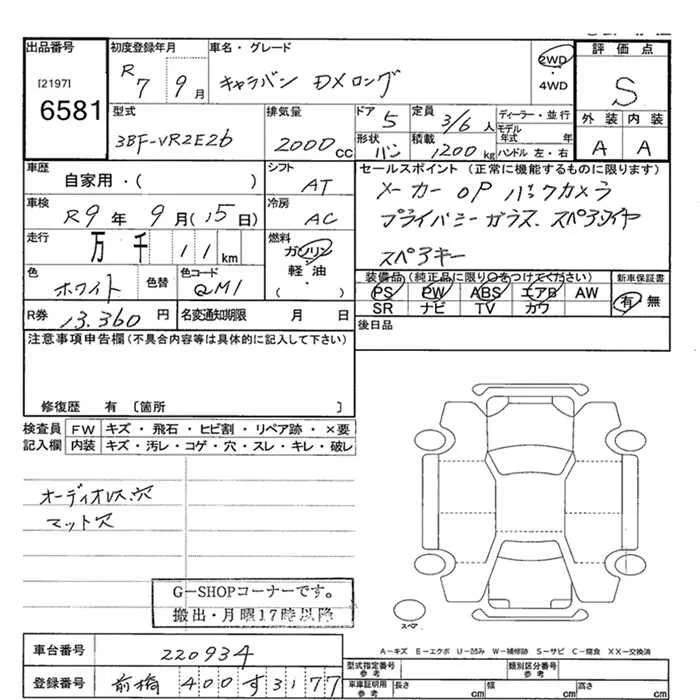 出品番号 初度登録年月 車名・グレード 評価点
[2197] R 7 9月 キャラバン DXロング 2WD・4WD S
6581 型式 排気量 ドア 定員 ディーラー・並行 外装 内装
3BF-VR2E26 2000cc 5 3/6人 モデル年式 年 A A
形状 バン 積載 1200kg ハンドル 左・右
車歴 シフト セールスポイント(正常に機能するものに限ります)
自家用・( ) AT メーカーOP バックカメラ
車検 冷房 プライバシーガラス、スペアタイヤ
R9年 9月(15日) AC スペアキー
走行 燃料
万千 11km ガソリン・軽油( )
色 色替 色コード 装備品(純正品に限り○をつけてください) 新車保証書
ホワイト QM1 PS PW ABS エアB AW 有 無
R券 13.360円 名変通知期限 月 日 SR ナビ TV カワ
注意事項申告欄(不具合内容等は具体的に記入して下さい) 後日品
修復歴 有 〔箇所 〕
検査員記入欄 FW キズ・飛石・ヒビ割・リペア跡・×要
内装 キズ・汚レ・コゲ・穴・スレ・キレ・破レ
オーディオレス穴
マット穴
G-SHOPコーナーです。
搬出・月曜17時以降
スペア
A-キズ E-エクボ U-凹み W-補修跡 S-サビ C-腐食 XX-交換済
車台番号 220934 型式指定番号 参考 類別区分番号 参考
登録番号 前橋 400 す 31 77 車庫証明用 参考 長さ cm 幅 cm 高さ cm